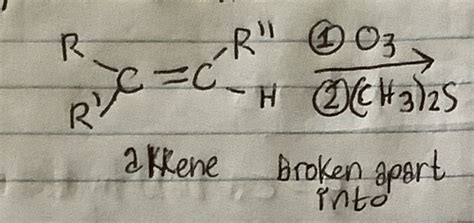 R R" ① O3
C=C
R' H ②(CH3)2S
alkene broken apart
into